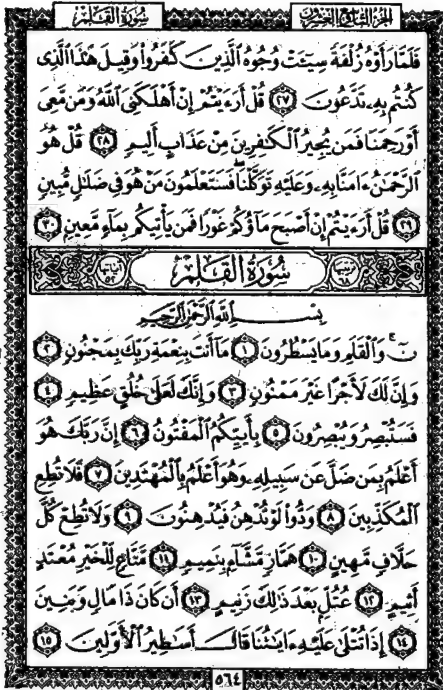 سُورَةُ القَلَمِ
الجزء التاسع والعشرون
فَلَمَّا رَأَوْهُ زُلْفَةً سِيٓـَٔتْ وُجُوهُ ٱلَّذِينَ كَفَرُوا۟ وَقِيلَ هَٰذَا ٱلَّذِى
كُنتُم بِهِۦ تَدَّعُونَ ٢٧ قُلْ أَرَءَيْتُمْ إِنْ أَهْلَكَنِىَ ٱللَّهُ وَمَن مَّعِىَ
أَوْ رَحِمَنَا فَمَن يُجِيرُ ٱلْكَٰفِرِينَ مِنْ عَذَابٍ أَلِيمٍ ٢٨ قُلْ هُوَ
ٱلرَّحْمَٰنُ ءَامَنَّا بِهِۦ وَعَلَيْهِ تَوَكَّلْنَا فَسَتَعْلَمُونَ مَنْ هُوَ فِى ضَلَٰلٍ مُّبِينٍ
٢٩ قُلْ أَرَءَيْتُمْ إِنْ أَصْبَحَ مَآؤُكُمْ غَوْرًا فَمَن يَأْتِيكُم بِمَآءٍ مَّعِينٍۭ ٣٠
ترتيبها ٦٨ سُورَةُ القَلَمِ آياتها ٥٢
بِسْمِ ٱللَّهِ ٱلرَّحْمَٰنِ ٱلرَّحِيمِ
نٓ وَٱلْقَلَمِ وَمَا يَسْطُرُونَ ١ مَآ أَنتَ بِنِعْمَةِ رَبِّكَ بِمَجْنُونٍ ٢
وَإِنَّ لَكَ لَأَجْرًا غَيْرَ مَمْنُونٍ ٣ وَإِنَّكَ لَعَلَىٰ خُلُقٍ عَظِيمٍ ٤
فَسَتُبْصِرُ وَيُبْصِرُونَ ٥ بِأَييِّكُمُ ٱلْمَفْتُونُ ٦ إِنَّ رَبَّكَ هُوَ
أَعْلَمُ بِمَن ضَلَّ عَن سَبِيلِهِۦ وَهُوَ أَعْلَمُ بِٱلْمُهْتَدِينَ ٧ فَلَا تُطِعِ
ٱلْمُكَذِّبِينَ ٨ وَدُّوا۟ لَوْ تُدْهِنُ فَيُدْهِنُونَ ٩ وَلَا تُطِعْ كُلَّ
حَلَّافٍ مَّهِينٍ ١٠ هَمَّازٍ مَّشَّآءٍۭ بِنَمِيمٍ ١١ مَّنَّاعٍ لِّلْخَيْرِ مُعْتَدٍ
أَثِيمٍ ١٢ عُتُلٍّۭ بَعْدَ ذَٰلِكَ زَنِيمٍ ١٣ أَن كَانَ ذَا مَالٍ وَبَنِينَ
١٤ إِذَا تُتْلَىٰ عَلَيْهِ ءَايَٰتُنَا قَالَ أَسَٰطِيرُ ٱلْأَوَّلِينَ ١٥
٥٦٤